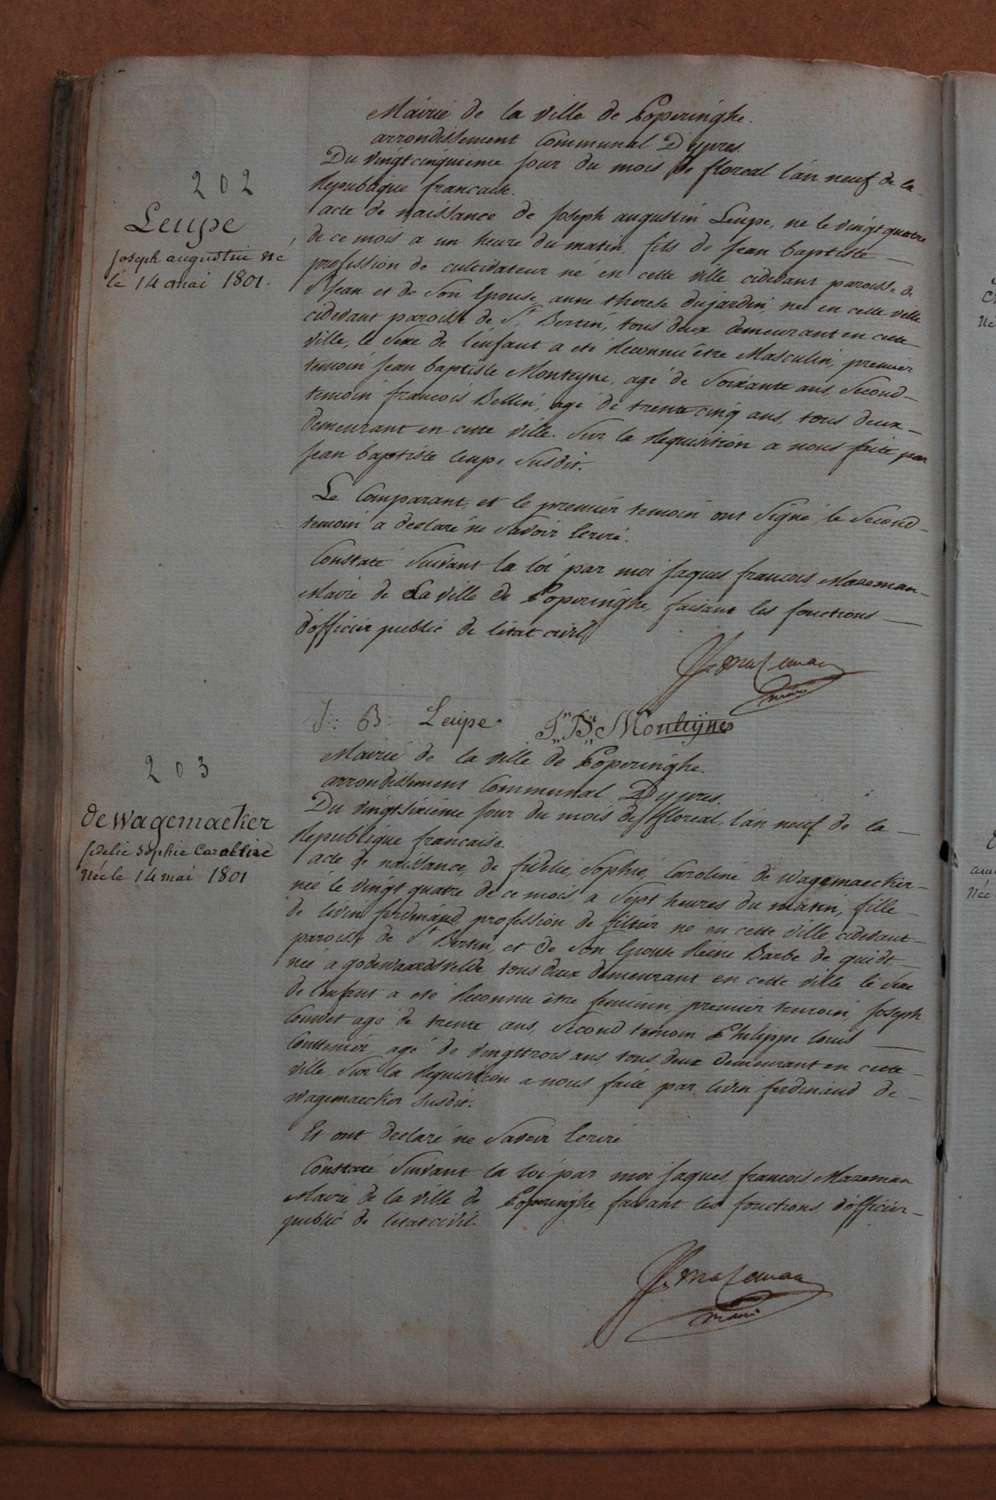 202
Leupe
Joseph augustin né
le 14 mai 1801.
Mairie de la ville de Poperinghe.
arrondissement Communal D'ypres.
Du vingtcinquieme jour du mois de floreal l'an neuf de la
Republique francaise.
acte de naissance de Joseph augustin Leupe, né le vingt quatre
de ce mois a un heure du matin, fils de Jean baptiste
profession de cultivateur né en cette ville cidevant paroisse de
St Jean et de Son Epouse anne therese dujardin, née en cette ville
cidevant paroisse de St Bertin, tous deux demeurant en cette
ville, le Sexe de l'enfant a eté Reconnu être Masculin, premier
temoin Jean baptiste Monteyne, agé de Soixante ans, Second
temoin francois Bellin, agé de trente cinq ans, tous deux
demeurant en cette ville. Sur la Requisition a nous faite par
Jean baptiste leupe Susdit.
Le Comparant, et le premier temoin ont Signé, le Second
temoin a declaré ne Savoir Ecrire.
Constaté Suivant la loi par moi Jaques francois Mazeman
Maire de La ville de Poperinghe, faisant les fonctions
d'officier public de l'etat civil
J. Mazeman
maire
J: B: Leupe J: B: Monteyne
203
de Wagemaeker
fidelie Sophie Caroline
Née le 14 mai 1801
Mairie de la ville de Poperinghe.
arrondissement Communal D'ypres.
Du vingtsixieme jour du mois de floreal, l'an neuf de la
Republique francaise
acte de naissance, de fidelie, Sophie, Caroline de Wagemaecker
née le vingt quatre de ce mois a Sept heures du matin, fille
de livin ferdinand, profession de filtier né en cette ville cidevant
paroisse de St Bertin, et de Son Epouse Reine Barbe de quidt
née a godewaersvelde, tous deux demeurant en cette ville le Sexe
de l'enfant a eté Reconnu être feminin, premier temoin, Joseph
Couvet agé de trente ans, Second temoin Philippe louis
Contenier agé de vingttrois ans, tous deux demeurant en cette
ville. Sur la Requisition a nous faite par livin ferdinand de
wagemaecker Susdit.
Et ont declaré ne Savoir Ecrire
Constaté Suivant la loi par moi Jaques francois Mazeman
Maire de la ville de Poperinghe faisant les fonctions d'officier
public de l'etat civil.
J. Mazeman
maire